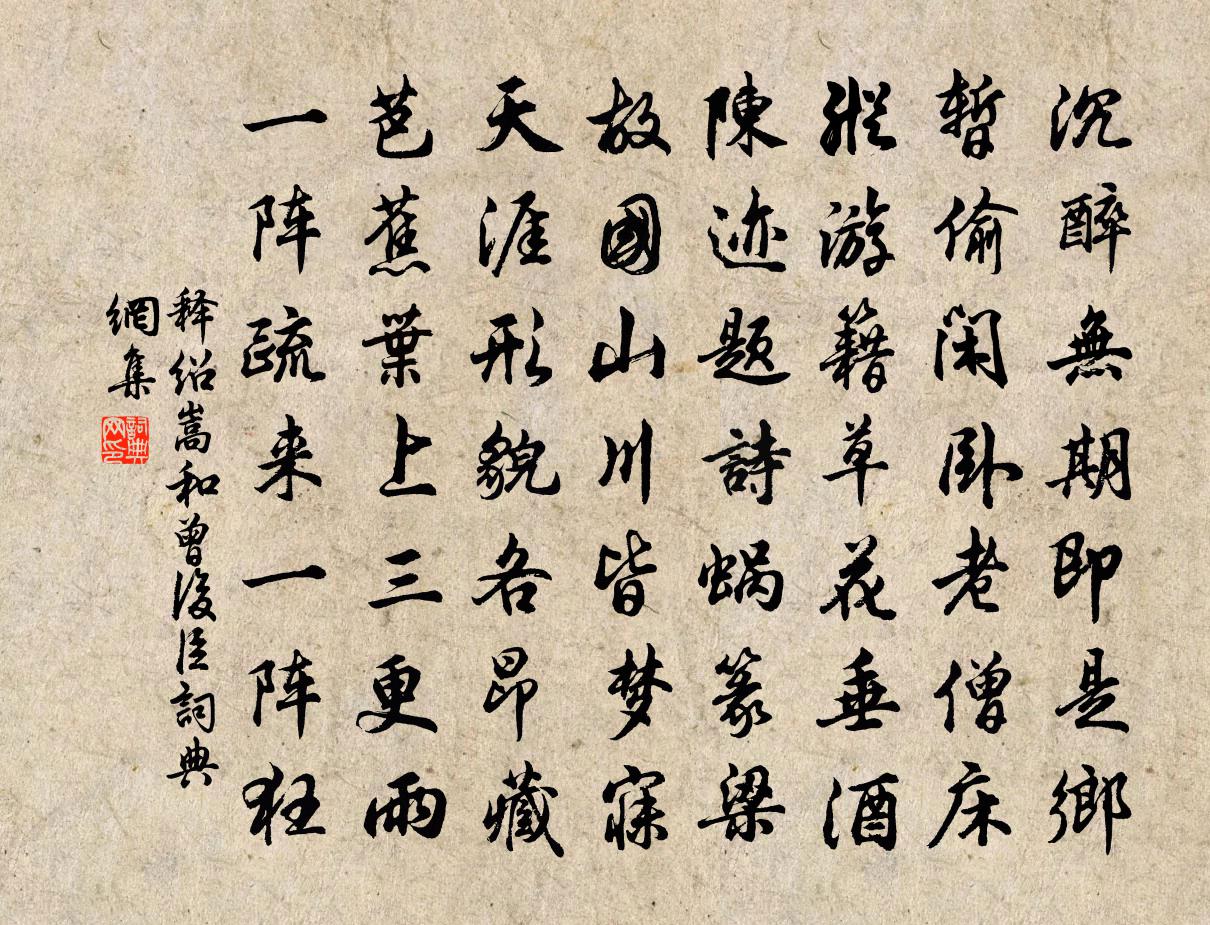 沉醉無期即是鄉
暫偷閑卧老僧床
縱游籍草花垂酒
陳迹題詩蝸篆梁
故國山川皆梦寐
天涯形貌各昂藏
芭蕉葉上三更雨
一阵疏来一阵狂
释绍嵩和曾浚臣詞典
網集
詞典
网印